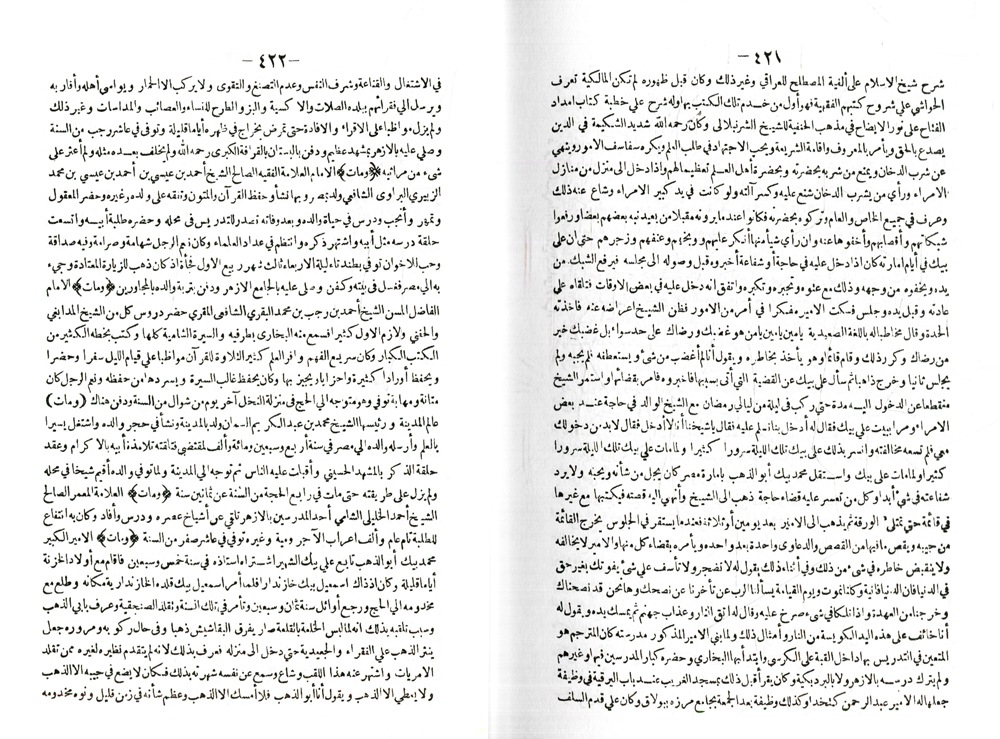 — ٤٢١ —
شرح شيخ الاسلام على ألفية المصطلح للعراقي وغير ذلك وكان قبل ظهوره لم تكن المالكية تعرف
الحواشي على شروح كتبهم الفقهية فهو أول من خدم تلك الكتب بها وله شرح على خطبة كتاب امداد
الفتاح على نور الايضاح في مذهب الحنفية للشيخ الشرنبلالى وكان رحمه الله شديد الشكيمة في الدين
يصدع بالحق ويأمر بالمعروف واقامة الشريعة ويحب الاجتهاد في طلب العلم ويكره سفاسف الامور وينهي
عن شرب الدخان ويمنع من شربه بحضرته وبحضرة أهل العلم تعظيما لهم واذا دخل الى منزل من منازل
الامراء ورأي من يشرب الدخان شنع عليه وكسر آلته ولو كانت في يد كبير الامراء وشاع عنه ذلك
وعرف في جميع الخاص والعام وتركوه بحضرته فكانوا عند ما يرونه مقبلا من بعيد نبه بعضهم بعضا ورفعوا
شبكاتهم وأقصابهم وأخفوها عنه وان رأي شيأ منها أنكر عليهم ووبخهم وعنفهم وزجرهم حتى ان على
بيك في أيام امارته كان اذا دخل عليه في حاجة أو شفاعة أخبروه قبل وصوله الى مجلسه فيرفع الشبك من
يده ويخفوه من وجهه وذلك مع عتوه وتجبره وتكبره واتفق انه دخل عليه في بعض الاوقات فتلقاه على
عادته وقبل يده وجلس فسكت الامير مفكرا في أمر من الامور فظن الشيخ اعراضه عنه فأخذته
الحدة وقال مخاطبا له باللغة الصعيدية يامين يامين يامن هو غضبك ورضاك على حد سوا ء بل غضبك خير
من رضاك وكرر ذلك وقام قائما وهو يأخذ بخاطره ويقول أنا لم أغضب من شئ ويستعطفه فلم يجبه ولم
يجلس ثانيا وخرج ذاهبا ثم سأل على بيك عن القضية التي أتى بسببها فاخبروه فامر بقضائها واستمر الشيخ
منقطعا عن الدخول اليه مدة حتى ركب في ليلة من ليالي رمضان مع الشيخ الوالد في حاجة عند بعض
الامراء ومرا ببيت على بيك فقال له أدخل بنا نسلم عليه فقال ياشيخنا أنا لا أدخل فقال لا بد من دخولك
معي فلم تسعه مخالفته وانسر بذلك على بيك تلك الليلة سرورا كثيرا ولما مات على بيك
كثيرا ولما مات على بيك واستقل محمد بيك أبو الذهب بامارة مصر كان يجل من شأنه ويحبه ولا يرد
شفاعته في شئ أبدا وكل من تعسر عليه قضاء حاجة ذهب الى الشيخ وأنهي اليه قصته فيكتبها مع غيرها
في قائمة حتى تمتلئ الورقة ثم يذهب الى الامير بعد يومين أو ثلاثة فعند ما يستقر في الجلوس يخرج القائمة
من جيبه ويقص ما فيها من القصص والدعاوى واحدة بعد واحدة ويأمره بقضاء كل منها والامير لا يخالفه
ولا ينقبض خاطره في شئ من ذلك وفي أثناء ذلك يقول له لا تضجر ولا تأسف على شئ يفوتك بغير حق
في الدنيا فان الدنيا فانية وكلنا نموت ويوم القيامة يسألنا الرب عن تأخرنا عن نصحك وها نحن قد نصحناك
وخرجنا من العهدة واذا تلكأ في شئ صرخ عليه وقال له اتق النار وعذاب جهنم ثم يمسك يده ويقول له
أنا خائف على هذه اليد الكويسة من النار وأمثال ذلك ولما بنى الامير المذكور مدرسته كان المترجم هو
المتعين في التدريس بها داخل القبة على الكرسي وابتدأ بها البخاري وحضره كبار المدرسين فيها وغيرهم
ولم يترك درسه بالازهر ولا بالبردبكية وكان يقرأ قبل ذلك بمسجد الغريب عند باب البرقية في وظيفة
جعلها له الامير عبد الرحمن كتخدا وكذلك وظيفة بعد الجمعة بجامع مرزه ببولاق وكان على قدم السلف
— ٤٢٢ —
في الاشتغال والقناعة وشرف النفس وعدم التصنع والتقوى ولا يركب الا الحمار ويواسي أهله وأقاربه
ويرسل الى فقرائهم ببلده الصلات والاكسية والبز والطرح للنساء والعصائب والمداسات وغير ذلك
ولم يزل مواظبا على الاقراء والافادة حتى تمرض بخراج في ظهره أياما قليلة وتوفى في عاشر رجب من السنة
وصلي عليه بالازهر بمشهد عظيم ودفن بالبستان بالقرافة الكبرى رحمه الله ولم يخلف بعده مثله ولم أعثر على
شئ من مراثيه ﴿ومات﴾ الامام العلامة الفقيه الصالح الشيخ أحمد بن عيسى بن أحمد بن عيسى بن محمد
الزبيري البراوى الشافعي ولد بمصر وبها نشأ وحفظ القرآن والمتون وتفقه على والده وغيره وحضر المعقول
وتمهر وأنجب ودرس في حياة والده وبعد وفاته تصدر للتدريس في محله وحضره طلبة أبيه واتسعت
حلقة درسه مثل أبيه واشتهر ذكره وانتظم في عداد العلماء وكان نعم الرجل شهامة وصرامة وفيه صداقة
وحب للاخوان توفي بطندتاء ليلة الاربعاء ثالث شهر ربيع الاول فجأة اذ كان ذهب للزيارة المعتادة وجيء
به الى مصر فغسل في بيته وكفن وصلى عليه بالجامع الازهر ودفن بتربة والده بالمجاورين ﴿ومات﴾ الامام
الفاضل المسن الشيخ أحمد بن رجب بن محمد البقري الشافعي المقري حضر دروس كل من الشيخ المدابغي
والحفني ولازم الاول كثيرا فسمع منه البخارى بطرفيه والسيرة الشامية كلها وكتب بخطه الكثير من
الكتب الكبار وكان سريع الفهم وافر العلم كثير التلاوة للقرآن مواظبا على قيام الليل سفرا وحضرا
ويحفظ أورادا كثيرة واحزابا ويجيز بها وكان يحفظ غالب السيرة ويسردها من حفظه ونعم الرجل كان
متانة ومهابة توفي وهو متوجه الى الحج في منزلة النخل آخر يوم من شوال من السنة ودفن هناك (ومات)
عالم المدينة ورئيسها الشيخ محمد بن عبد الكريم السمان ولد بالمدينة ونشأ في حجر والده واشتغل يسيرا
بالعلم وأرسله والده الى مصر في سنة أربع وسبعين ومائة وألف لمقتضى فتلقته تلامذة أبيه بالاكرام وعقد
حلقة الذكر بالمشهد الحسيني وأقبلت عليه الناس ثم توجه الى المدينة ولما توفى والده أقيم شيخا في محله
ولم يزل على طريقته حتى مات في رابع الحجة من السنة عن ثمانين سنة ﴿ومات﴾ العلامة المعمر الصالح
الشيخ أحمد الخليلى الشامي أحد المدرسين بالازهر تلقي عن أشياخ عصره ودرس وأفاد وكان به انتفاع
للطلبة تام عام وألف اعراب الآجرومية وغيره توفي في عاشر صفر من السنة ﴿ومات﴾ الامير الكبير
محمد بيك أبو الذهب تابع على بيك الشهير اشتراه استاذه في سنة خمس وسبعين فاقام مع أولاد الخزنة
أياما قليلة وكان اذ ذاك اسمعيل بيك خازندار فلما أمر اسمعيل بيك قلده الخازندارية مكانه وطلع مع
مخدومه الى الحج ورجع أوائل سنة ثمان وسبعين وتأمر في تلك السنة وتقلد الصنجقية وعرف بأبى الذهب
وسبب تلقبه بذلك انه لما لبس الخلعة بالقلعة صار يفرق البقاشيش ذهبا وفي حال ركوبه ومروره جعل
ينثر الذهب على الفقراء والجعيدية حتى دخل الى منزله فعرف بذلك لانه لم يتقدم نظيره لغيره ممن تقلد
الامريات واشتهر عنه هذا اللقب وشاع وسمع عن نفسه شهرته بذلك فكان لا يضع في جيبه الا الذهب
ولا يعطى الا الذهب ويقول أنا أبو الذهب فلا أمسك الا الذهب وعظم شأنه في زمن قليل ونوه مخدومه